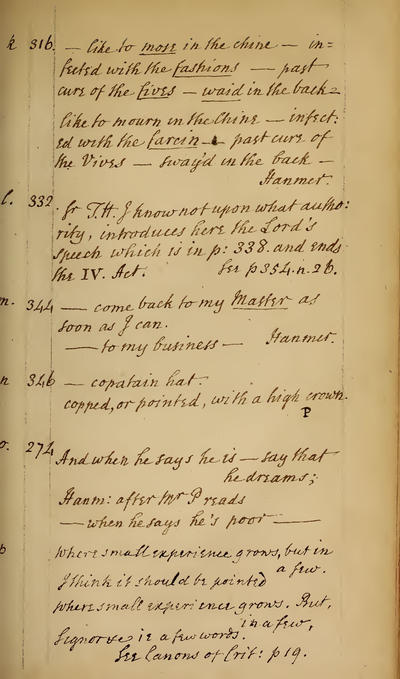 k 316. — like to mose in the chine — in=
fected with the fashions — past
cure of the fives — waid in the back =
like to mourn in the Chine — infect:
ed with the farcin — past cure of
the Vives — sway'd in the back —
Hanmer.
l. 332 Sr T.H. I know not upon what autho:
rity, introduces here the Lord's
speech which is in p: 338. and ends
the IV. Act. See p 354. n. 26.
m. 344 — come back to my Master as
soon as I can.
— to my business — Hanmer.
n 346 — copatain hat.
copped, or pointed, with a high crown.
P
o. 274 And when he says he is — say that
he dreams;
Hanm: after Mr P reads
— when he says he's poor —
b where small experience grows, but in
a few.
I think it should be pointed
where small experience grows. But,
in a few,
Signor &c ie a few words.
See Canons of Crit: p 19.